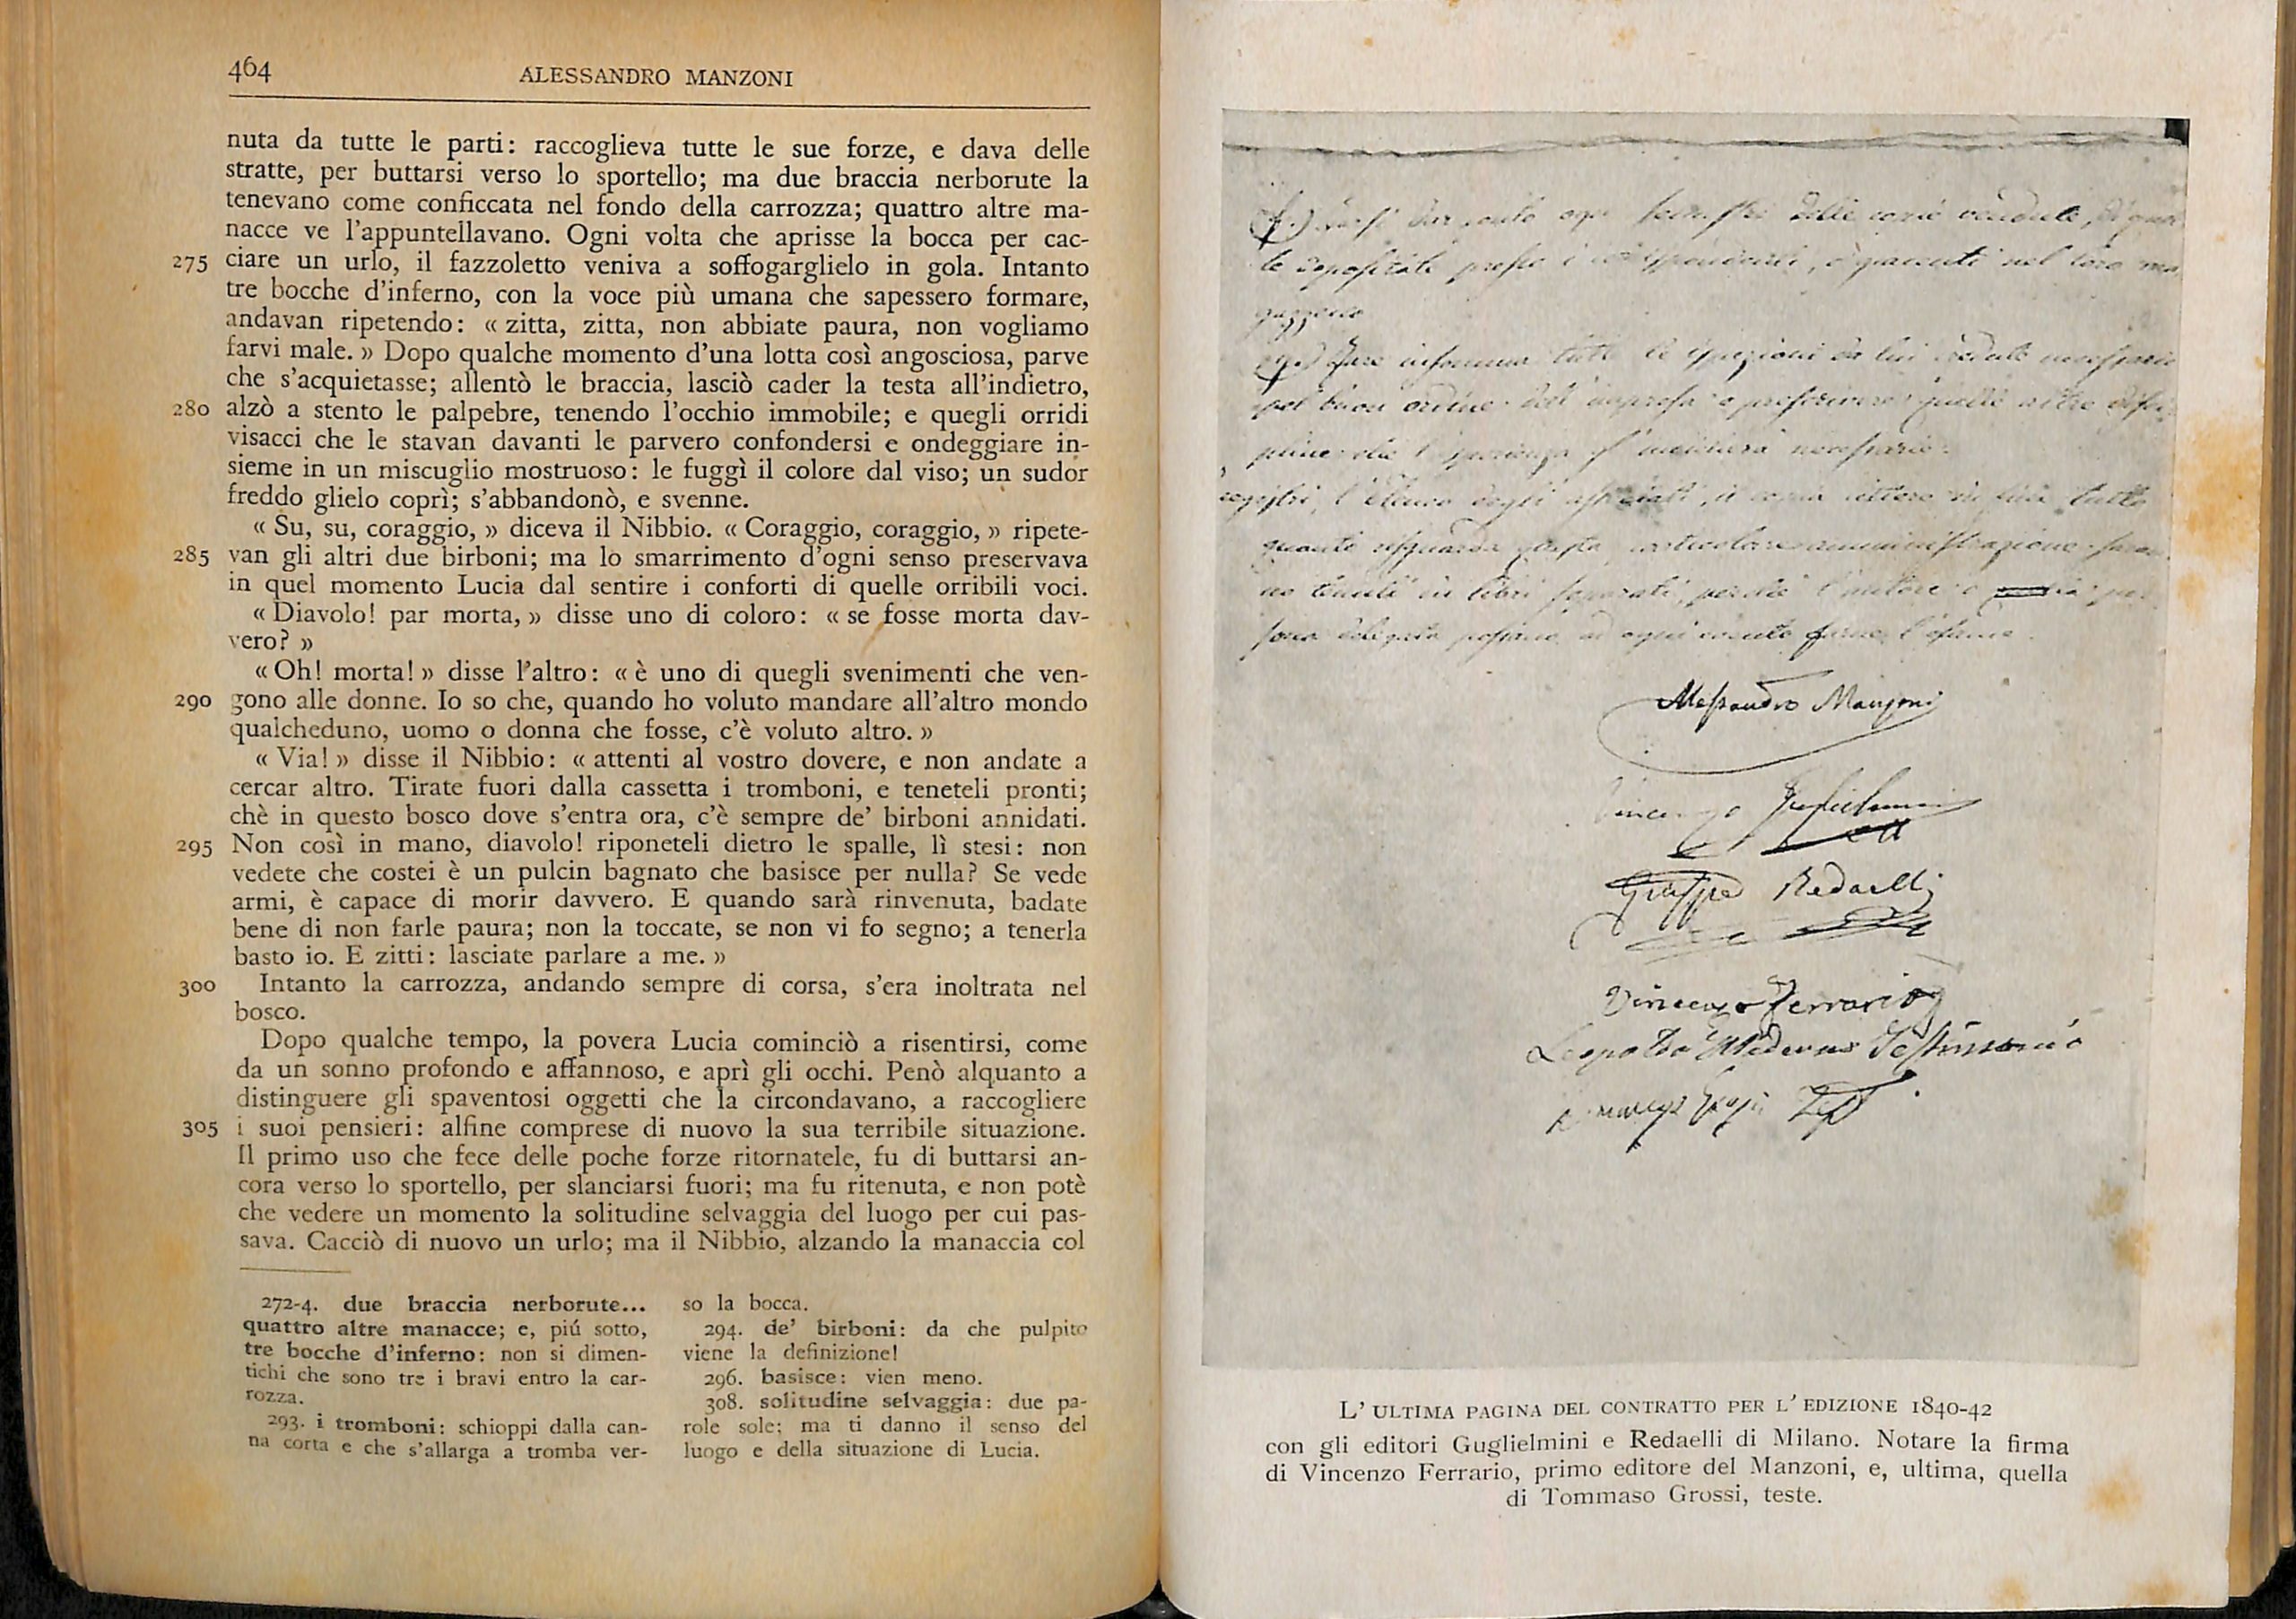 464
ALESSANDRO MANZONI
nuta da tutte le parti: raccoglieva tutte le sue forze, e dava delle
stratte, per buttarsi verso lo sportello; ma due braccia nerborute la
tenevano come conficcata nel fondo della carrozza; quattro altre ma-
nacce ve l'appuntellavano. Ogni volta che aprisse la bocca per cac-
275 ciare un urlo, il fazzoletto veniva a soffogarglielo in gola. Intanto
tre bocche d'inferno, con la voce più umana che sapessero formare,
andavan ripetendo: « zitta, zitta, non abbiate paura, non vogliamo
farvi male. » Dopo qualche momento d'una lotta così angosciosa, parve
che s'acquietasse; allentò le braccia, lasciò cader la testa all'indietro,
280 alzò a stento le palpebre, tenendo l'occhio immobile; e quegli orridi
visacci che le stavan davanti le parvero confondersi e ondeggiare in-
sieme in un miscuglio mostruoso: le fuggì il colore dal viso; un sudor
freddo glielo coprì; s'abbandonò, e svenne.
« Su, su, coraggio, » diceva il Nibbio. « Coraggio, coraggio, » ripete-
285 van gli altri due birboni; ma lo smarrimento d'ogni senso preservava
in quel momento Lucia dal sentire i conforti di quelle orribili voci.
« Diavolo! par morta, » disse uno di coloro: « se fosse morta dav-
vero? »
« Oh! morta! » disse l'altro: « è uno di quegli svenimenti che ven-
290 gono alle donne. Io so che, quando ho voluto mandare all'altro mondo
qualcheduno, uomo o donna che fosse, c'è voluto altro. »
« Via! » disse il Nibbio: « attenti al vostro dovere, e non andate a
cercar altro. Tirate fuori dalla cassetta i tromboni, e teneteli pronti;
chè in questo bosco dove s'entra ora, c'è sempre de' birboni annidati.
295 Non così in mano, diavolo! riponeteli dietro le spalle, lì stesi: non
vedete che costei è un pulcin bagnato che basisce per nulla? Se vede
armi, è capace di morir davvero. E quando sarà rinvenuta, badate
bene di non farle paura; non la toccate, se non vi fo segno; a tenerla
basto io. E zitti: lasciate parlare a me. »
300 Intanto la carrozza, andando sempre di corsa, s'era inoltrata nel
bosco.
Dopo qualche tempo, la povera Lucia cominciò a risentirsi, come
da un sonno profondo e affannoso, e aprì gli occhi. Penò alquanto a
distinguere gli spaventosi oggetti che la circondavano, a raccogliere
305 i suoi pensieri: alfine comprese di nuovo la sua terribile situazione.
Il primo uso che fece delle poche forze ritornatele, fu di buttarsi an-
cora verso lo sportello, per slanciarsi fuori; ma fu ritenuta, e non potè
che vedere un momento la solitudine selvaggia del luogo per cui pas-
sava. Cacciò di nuovo un urlo; ma il Nibbio, alzando la manaccia col
272-4. due braccia nerborute...
quattro altre manacce; e, piú sotto,
tre bocche d'inferno: non si dimen-
tichi che sono tre i bravi entro la car-
rozza.
293. i tromboni: schioppi dalla can-
na corta e che s'allarga a tromba ver-
so la bocca.
294. de' birboni: da che pulpito
viene la definizione!
296. basisce: vien meno.
308. solitudine selvaggia: due pa-
role sole; ma ti danno il senso del
luogo e della situazione di Lucia.
Alessandro Manzoni
Vincenzo Guglielmini
Giuseppe Redaelli
Vincenzo Ferrario
L' ULTIMA PAGINA DEL CONTRATTO PER L' EDIZIONE 1840-42
con gli editori Guglielmini e Redaelli di Milano. Notare la firma
di Vincenzo Ferrario, primo editore del Manzoni, e, ultima, quella
di Tommaso Grossi, teste.